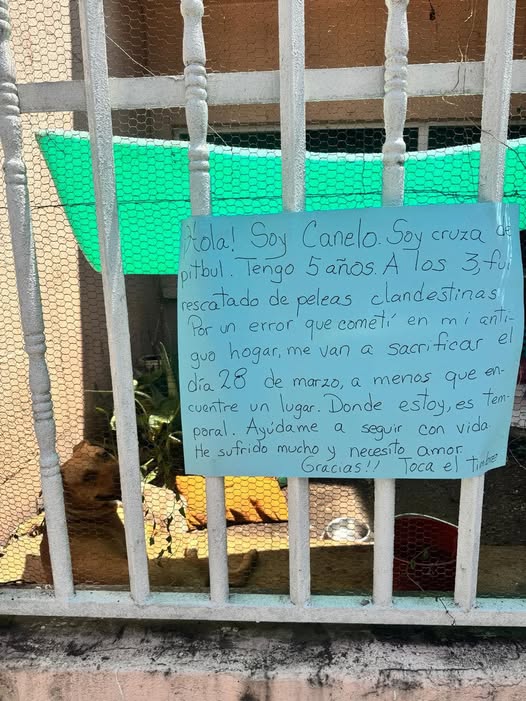 ¡Hola! Soy Canelo. Soy cruza de
pitbul. Tengo 5 años. A los 3, fui
rescatado de peleas clandestinas
Por un error que cometí en mi anti-
guo hogar, me van a sacrificar el
día 28 de marzo, a menos que en-
cuentre un lugar. Donde estoy, es tem-
poral. Ayúdame a seguir con vida
He sufrido mucho y necesito amor
Gracias!! Toca el timbre